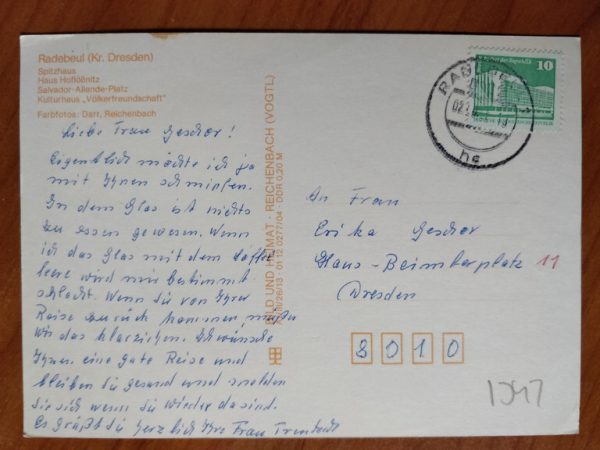 Radebeul (Kr. Dresden)
Spitzhaus
Haus Hoflößnitz
Salvador-Allende-Platz
Kulturhaus „Völkerfreundschaft"
Farbfotos: Darr, Reichenbach
Liebe Frau Gescher!
Eigentlich möchte ich ja
mit Ihnen schimpfen.
In dem Glas ist nichts
zu essen gewesen. Wenn
ich das Glas mit dem Löffel
leere wird mir bestimmt
schlecht. Wenn Sie von Ihrer
Reise zurück kommen, müßen
wir das klarziehen. Ich wünsche
Ihnen eine gute Reise und
bleiben Sie gesund und
Sie sich wenn Sie wieder da sind.
Es grüßt Sie herzlich Ihre Frau
BILD UND HEIMAT · REICHENBACH (VOGTL)
01 12 0277/04 DDR 0,20 M
10
RAD
An Frau
Erika Gescher
Hans-Beimlerplatz 11
Dresden
8010